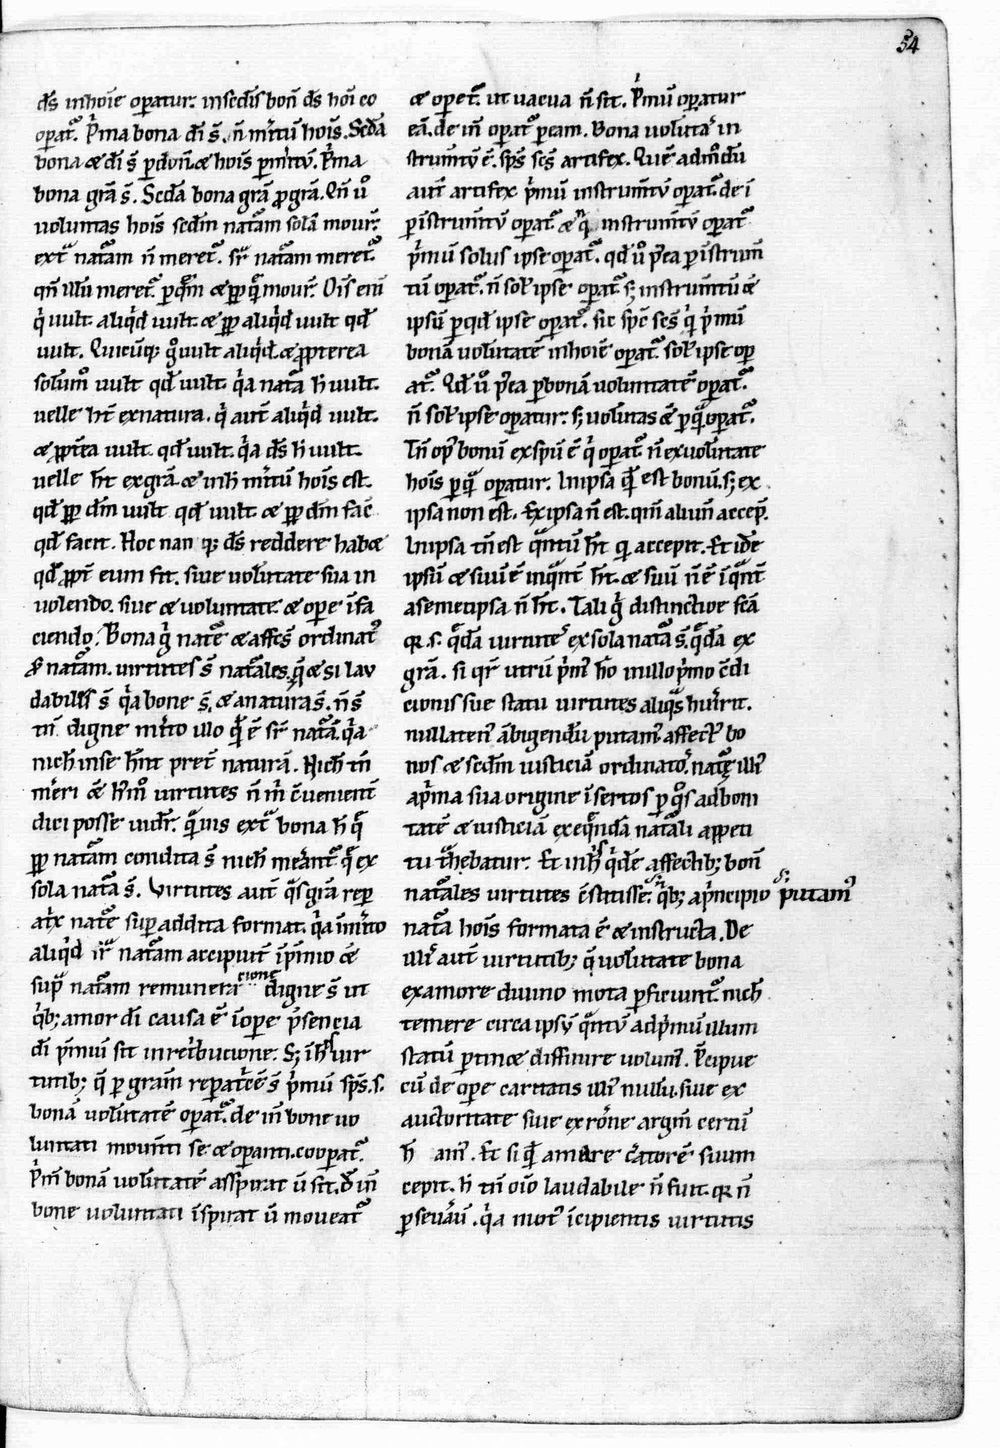 54
ds̄ inhoīe operatur. insedīs bon̄ ds̄ hoi co
operat̄. P̍ma bona dī s̄. n̄ m̍itū hoīs. Sed̄a
bona & dī s̄ p donū & hoīs p m̍itū. P̍ma
bona grā s̄. Sed̄a bona grā p grā. Qn̄ ū
voluntas hoīs sedm̄ natām solā mouet̄
ext̄ natām n̄ meret̄. sr̄ natām meret̄
qn̄ illū meret̄. p quē & pp quē mouet̄. Oīs eni
q̍ uult. aliq̍d uult. & pp aliq̍d uult qd̄
uult. Quicūq; g̊ uult aliq̍d. & ppterea
solum̄ uult qd̄ uult. q̍a natā h̄ uult.
uelle ht̄ exnatura. q̍ aut̄ aliq̍d uult.
& ppt̄ea uult. qd̄ uult. q̍a ds̄ h̄ uult.
uelle ht̄ exgrā. & inh̄ m̍itū hoīs est.
qd̄ pp dm̄ uult qd̄ uult. & pp dm̄ fac̄
qd̄ facit. Hoc nan q; ds̄ reddere habet
qd̄ ppt̄ eum fit. siue uolūtate sua in
uolendo. siue & voluntate & ope ī fa
ciendo. Bona g̍ nat̄e & affec̄s ordinat̄
s̄ natām. uirtutes s̄ natāles. q̄ & si lau
dabiles s̄ q̍a bone s̄. & anatura s̄. n̄ s̄
tn̄ digne m̍ito illo q̍d ē sr̄ natām. q̍a
nich̄ inse hn̄t pret̄ naturā. Nich̄ tn̄
m̍eri & h̄mō uirtutes n̄ m̍ c̄uenient̄
dici posse uidet̄. q̄uis ext̄ bona h̄ q̄
pp natām condita s̄ nich̄ mereant̄ q̄ ex
sola natā s̄. Virtutes aut̄ q̄s grā rep
atx nat̄e superaddita format. q̍a īm̍ito
aliq̍d s̄r̄ natām accipiut̄ īp̍mio &
sup̄ natām remuneracione digne s̄ ut
q̍b; amor dī causa ē īope p̍sencia
dī p̍miū sit in ret̍bucione. S; īhis uir
tutib; q̄ p grām reparat̄e s̄ p̍mū sps̄. s.
bonā volūtatē operat̄. de īn bone uo
luntati mouenti se & operanti. cooperat̄
P̍m bonā volūtatē aspirat ū sit. D̄ īn
bone voluntati īspirat ū moueat̄
& operet̄ ut uacua n̄ sit. P̍mū operatur
eā. de īn operat̄ p eam. Bona uolūtas in
strumtū ē. sps̄ sc̄s artifex. Quē admodū
aut̄ artifex p̍mū instrumtū operat̄. de ī
p īstrumtū operat̄ & q̄n instrumtū operat̄
p̍mū solus ipse operat̄. qd̄ ū p̍ea p īstrum̄
tū operat̄. n̄ solus ipse operat̄ s; instrum̄tū &
ipsū p qd̄ ipse operat̄. sic sps̄ sc̄s q̍ p̍mū
bonā uolūtatē inhoīe operat̄. solus ipse op
at̄. Qd̄ ū p̍ea p bonā uoluntatē operat̄.
n̄ solus ipse operatur. s; uolūtas & p q̄ operat̄.
In̄ op̄ bonū ex spū ē q̍ operat̄ n̄ exvolūtate
hoīs p q̄ operatur. In ipsa q̍d est bonū. s; ex
ipsa non est. Ex ipsa n̄ est. qm̄ aliun̄ accep̄.
In ipsa tn̄ est q̄ntū ht̄ q̍ accepit. Et id̄e
ipsū & suū ē inq̄nt̄ ht̄. & suū n̄ ē īq̄nt̄
asemetipsa n̄ ht̄. Tali g̍ distinctioe fc̄ā
qr. s. q̄dā uirtutes ex sola natā s̄. q̄dā ex
grā. si qr̄ utrū p̍m̄ hō in illo p̍mo c̄di
cionis sue statu uirtutes aliq̄s huerit.
nullaten̄ ābigendū putam̄ affect̄ bo
nos & sedm̄ iusticiā ordinatos. natē illi̍
ap̍ma sua origine īsertos p q̊s ad boni
tatē & iusticiā exeq̄ndā natāli appeti
tu t̍hebatur. Et inhis q̍dē affectib; bon̄
natāles uirtutes c̄stitisse. q̍b; ap̍ncipio p̍putam̄
natā hoīs formata ē & instructa. De
illis aut̄ uirtutib; q̄ volūtate bona
examore diuino mota p̄ficiunt̄. nich̄
temere circa ipsū q̄ntū ad p̍mū illum
statū p̄tin& diffinire volum̄. P̍cipue
cū de ope caritatis illi̍ nullū. siue ex
auctoritate siue ex rōne argm̄ certū
h̄ am̄. Et si q̍d amare c̍atorē suum
cepit. h̄ tn̄ oīo laudabile n̄ fuit. qr n̄
p̄seuāuī. q̍a mot̄ īcipientis uirtutis